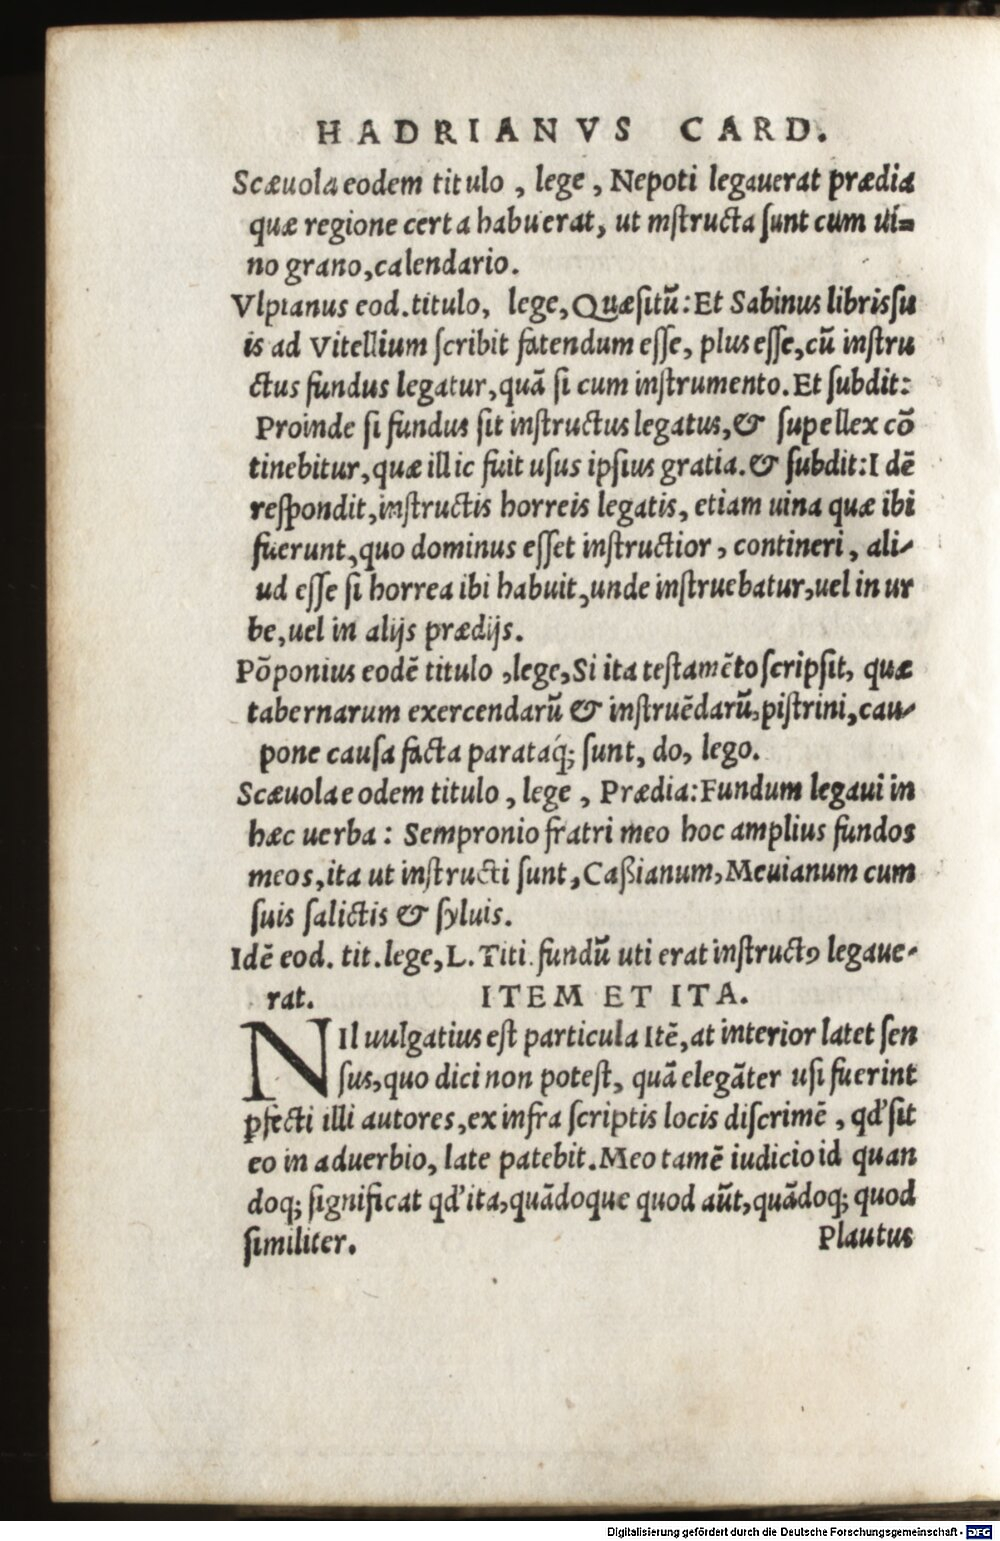 HADRIANVS CARD.
Scæuola eodem titulo, lege, Nepoti legauerat prædia
quæ regione certa habuerat, ut instructa sunt cum ui=
no grano, calendario.
Vlpianus eod. titulo, lege, Quæsitũ: Et Sabinus libris su
is ad Vitellium scribit fatendum esse, plus esse, cũ instru
ctus fundus legatur, quã si cum instrumento. Et subdit:
Proinde si fundus sit instructus legatus, & supellex cõ
tinebitur, quæ illic fuit usus ipsius gratia. & subdit: Idẽ
respondit, instructis horreis legatis, etiam uina quæ ibi
fuerunt, quo dominus esset instructior, contineri, ali-
ud esse si horrea ibi habuit, unde instruebatur, uel in ur
be, uel in alijs prædijs.
Põponius eodẽ titulo, lege, Si ita testamẽto scripsit, quæ
tabernarum exercendarũ & instruẽdarũ, pistrini, cau-
pone causa facta parataq́; sunt, do, lego.
Scæuola eodem titulo, lege, Prædia: Fundum legaui in
hæc uerba: Sempronio fratri meo hoc amplius fundos
meos, ita ut instructi sunt, Caßianum, Meuianum cum
suis salictis & syluis.
Idẽ eod. tit. lege, L. Titi. fundũ uti erat instructꝰ legaue-
rat. ITEM ET ITA.
NIl uulgatius est particula Itẽ, at interior latet sen
sus, quo dici non potest, quã elegãter usi fuerint
ꝑfecti illi autores, ex infra scriptis locis discrimẽ, qď sit
eo in aduerbio, late patebit. Meo tamẽ iudicio id quan
doq; significat qď ita, quãdoque quod aũt, quãdoq; quod
similiter. Plautus
Digitalisierung gefördert durch die Deutsche Forschungsgemeinschaft - DFG